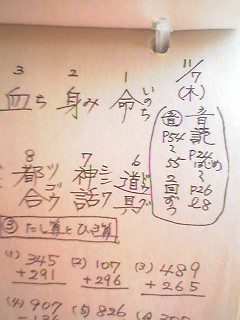 11/7 (木)
音読
P24 はじめ
〜
P26
l.8
音
P54
〜
55
2回ずつ
1 命 いのち
2 身 み
3 血 ち
6 道具 ドウグ
7 神話 シンワ
8 都合 ツゴウ
③ たし算とひき算
(1) 345 +291
(2) 107 +296
(3) 489 +265
(4) 907
(5) 826